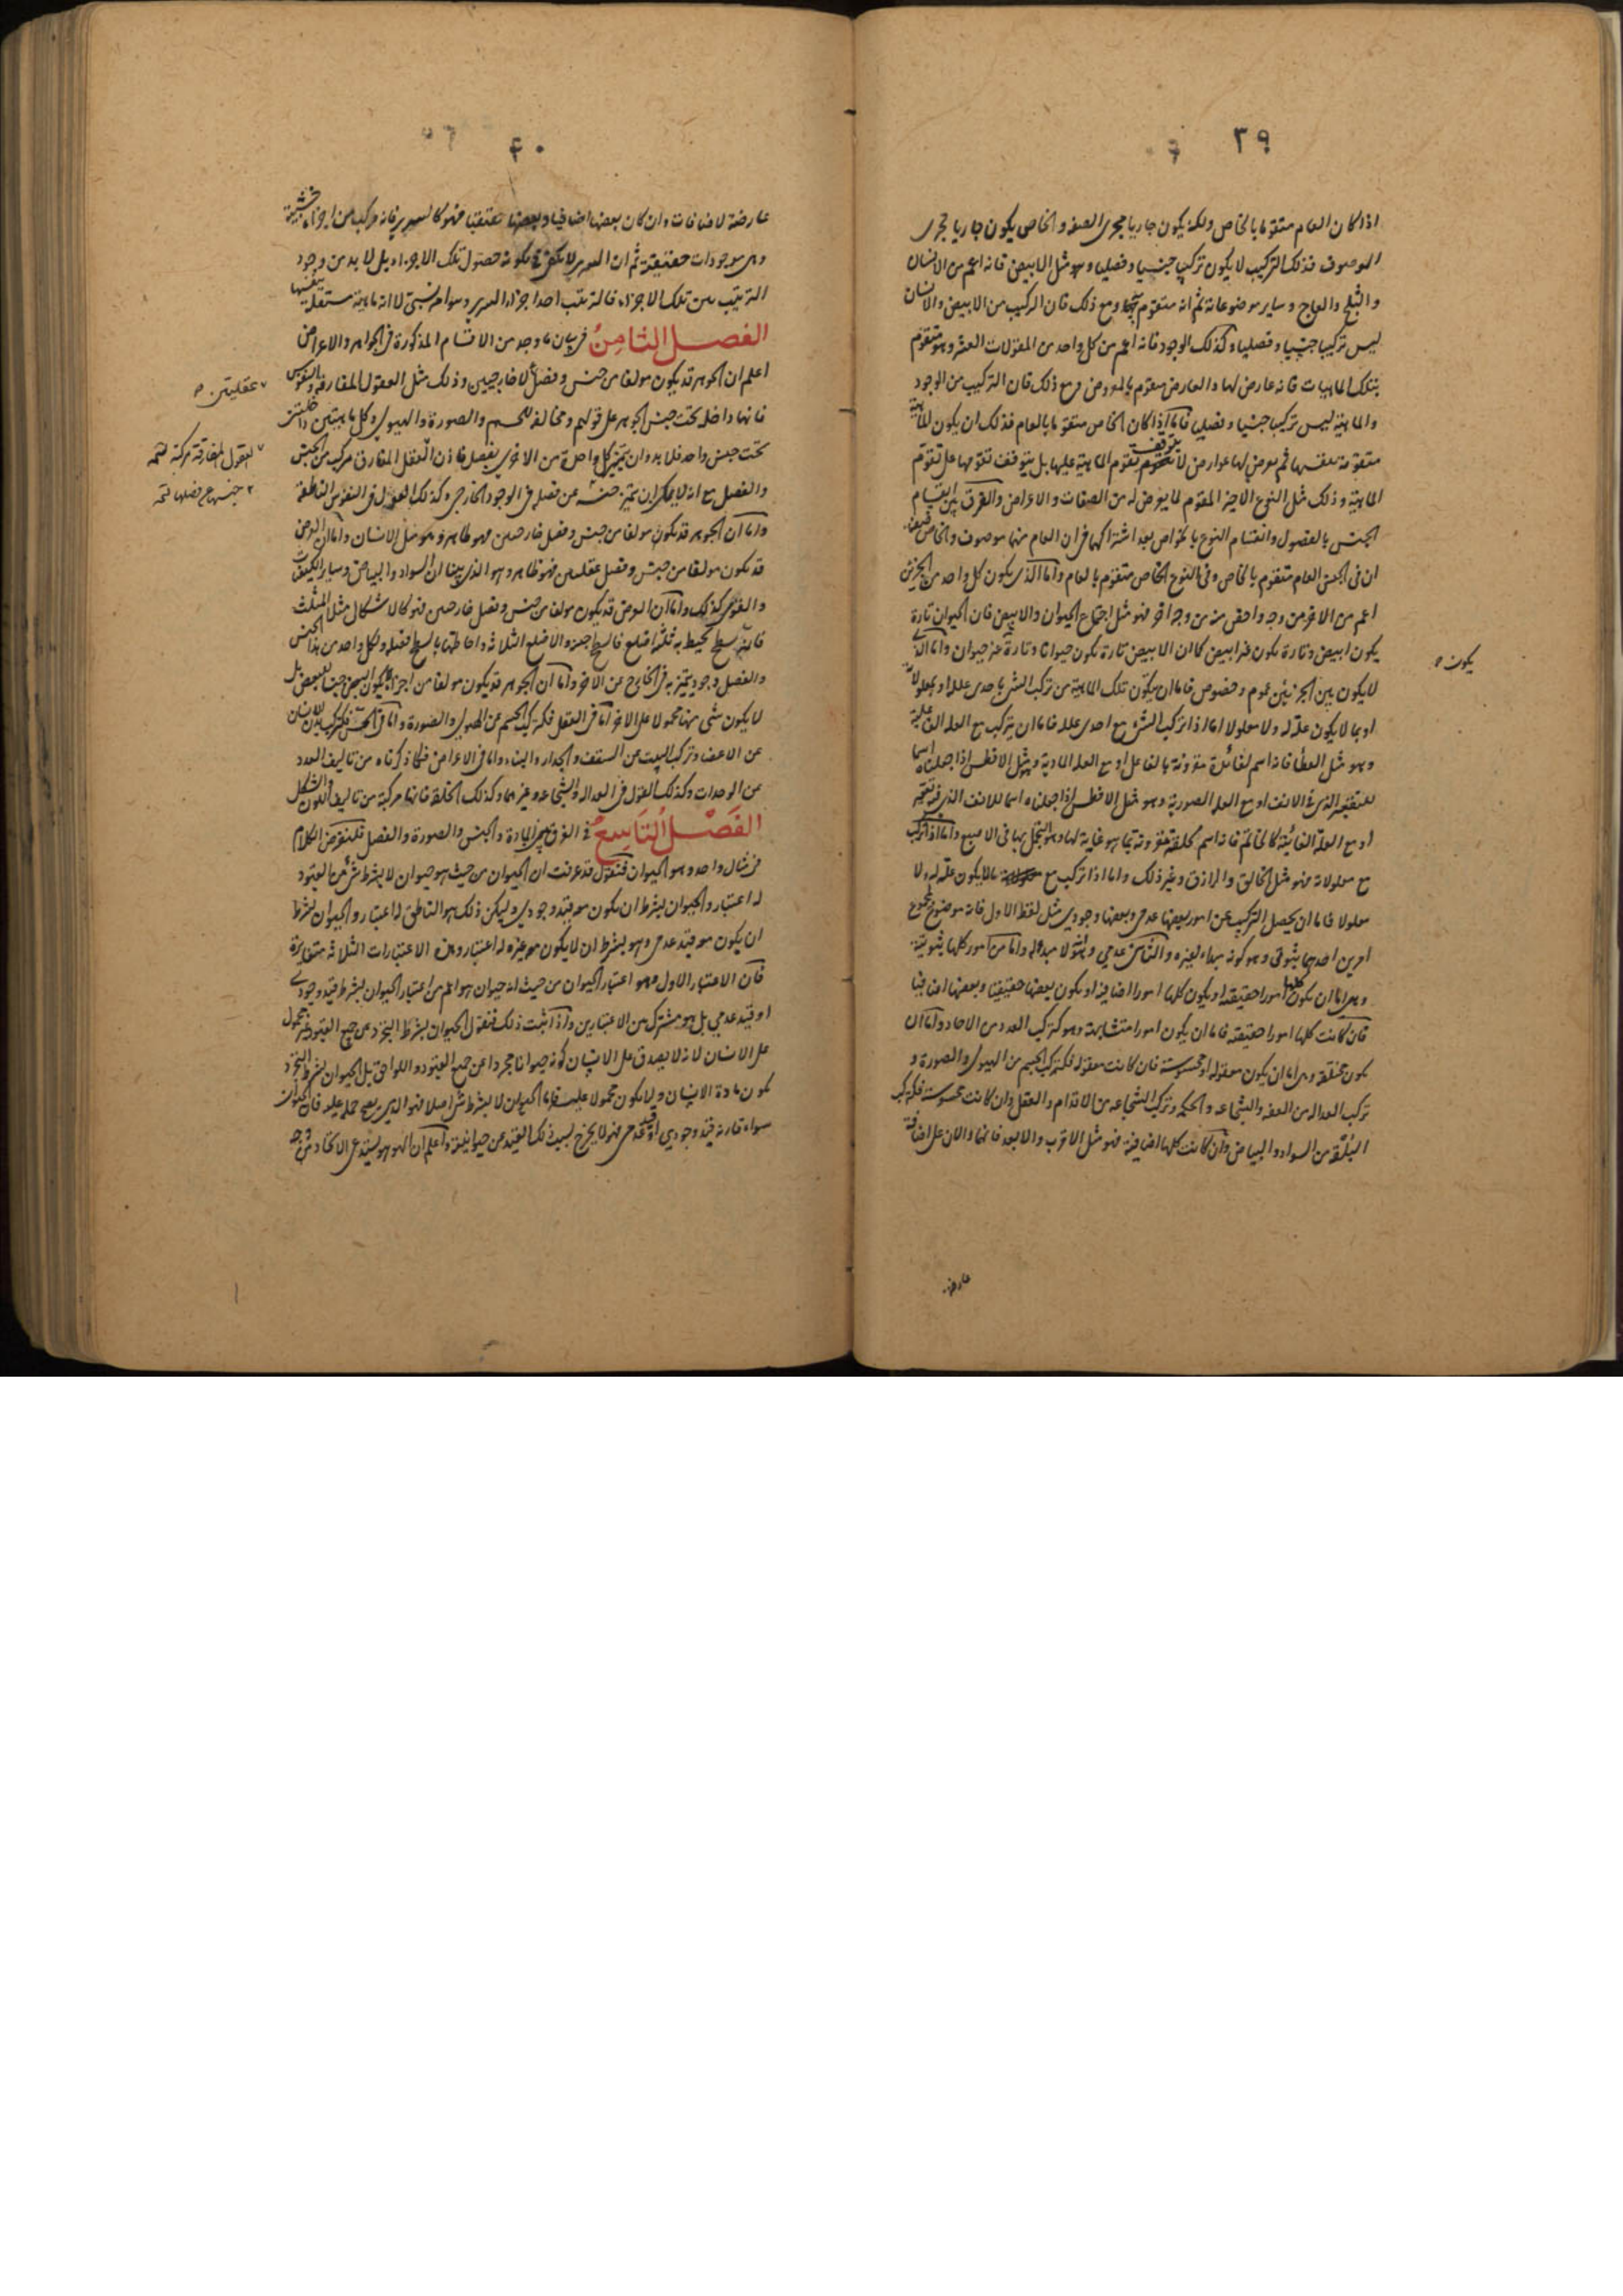 ٣٩
اذا كان العام متقوما بالخاص ولكنه يكون جاريا مجرى الصفة والخاص يكون جاريا مجرى
الموصوف فذلك التركيب لا يكون تركيبا جنسيا وفصليا وهو مثل الابيض فانه اعم من الانسان
والثلج والعاج وساير موضوعاته ثم انه متقوم بها ومع ذلك فان المركب من الابيض والانسان
ليس تركيبا جنسيا وفصليا وكذلك الوجود فانه اعم من كل واحد من المقولات العشر وهو متقوم
بتلك الماهيات فانه عارض لها والعارض متقوم بالمعروض ومع ذلك فان التركيب من الوجود
والماهية ليس تركيبا جنسيا وفصليا فاما اذا كان الخاص متقوما بالعام فذلك ان يكون الماهية
متقومة بنفسها ثم يعرض لها عوارض لا يتوقف تقوم الماهية عليها بل يتوقف تقومها على تقوم
الماهية وذلك مثل النوع الاخير المقوم لما يعرض له من الصفات والاعراض والفرق بين انقسام
الجنس بالفصول وانقسام النوع بالخواص بعد اشتراكهما فى ان العام منهما موصوف والخاص صفة
ان فى الجنس العام متقوم بالخاص وفى النوع الخاص متقوم بالعام واما الذى يكون كل واحد من الجزئين
اعم من الاخر من وجه واخص منه من وجه اخر فهو مثل اجتماع الحيوان والابيض فان الحيوان تارة
يكون ابيض وتارة يكون غير ابيض كما ان الابيض تارة يكون حيوانا وتارة غير حيوان واما الذى
يكون
لا يكون بين الجزئين عموم وخصوص فاما ان يكون تلك الماهية من تركب الشىء باحدى علله او بمعلولاته
او بما لا يكون علة له ولا معلولا اما اذا تركب الشىء مع احدى علله فاما ان يتركب مع العلة الفاعلية
وهو مثل العطاء فانه اسم لفائدة مقرونة بالفاعل او مع العلة المادية وهو مثل الافطس اذا جعلناه اسما
للتقعير الذى فى الانف او مع العلة الصورية وهو مثل الافطس اذا جعلناه اسما للانف الذى فيه تقعير
او مع العلة الغائية كالخاتم فانه اسم لحلقة مقرونة بما هو غاية لها وهو التجمل بها فى الاصبع واما اذا تركب
مع معلولاته فهو مثل الخالق والرازق وغير ذلك واما اذا تركب مع ما لا يكون علة له ولا
معلولا فاما ان يحصل التركيب عن امور بعضها عدمى وبعضها وجودى مثل لفظ الاول فانه موضوع لمجموع
امرين احدهما ثبوتى وهو كونه مبداء لغيره والثانى عدمى وانه لا مبدا له واما من امور كلها ثبوتية
وهى اما ان يكون كلها امورا حقيقية او يكون كلها امورا اضافية او يكون بعضها حقيقيا وبعضها اضافيا
فان كانت كلها امورا حقيقية فاما ان يكون امورا متشابهة وهو كتركب العدد من الاحاد واما ان
يكون مختلفة وهى اما ان يكون معقولة او محسوسة فان كانت معقولة فكتركب الجسم من الهيولى والصورة و
تركب العدالة من العفة والشجاعة والحكمة وتركب الشجاعة من الاقدام والعقل وان كانت محسوسة فكتركب
البلقة من السواد والبياض وان كانت كلها اضافية فهو مثل الاقرب والابعد فانهما دالان على اضافة
عارضة
٤٠
عارضة لاضافات وان كان بعضها اضافيا وبعضها حقيقيا فهو كالسرير فانه مركب من اجزاء خشبية
وهى موجودات حقيقية ثم ان السرير لا يكفى فى تكونه حصول تلك الاجزاء بل لا بد من وجود
الترتيب بين تلك الاجزاء فالترتيب احد اجزاء السرير وهو امر نسبى لا انه ماهية مستقلة بنفسها
الفصل الثامن فى بيان ما وجد من الاقسام المذكورة فى الجواهر والاعراض
اعلم ان الجوهر قد يكون مولفا من جنس وفصل لا خارجيين وذلك مثل العقول المفارقة والنفوس
عقليتين
فانها داخلة تحت جنس الجوهر على قولهم ومخالفة للجسم والصورة والهيولى وكل ماهيتين داخلتين
تحت جنس واحد فلا بد وان يتميز كل واحدة من الاخرى بفصل فاذن العقل المفارق مركب من الجنس
العقول المفارقة مركبة
والفصل مع انه لا يمكن ان يتميز جنسه عن فصله فى الوجود الخارجى وكذلك القول فى النفوس الناطقة
جنسها عن فصلها
واما ان الجوهر قد يكون مولفا من جنس وفصل خارجيين فهو ظاهر وهو مثل الانسان واما ان العرض
قد يكون مولفا من جنس وفصل عقليين فهو ظاهر وهو الذى بينا ان السواد والبياض وساير الكيفيات
والقوى كذلك واما ان العرض قد يكون مولفا من جنس وفصل خارجيين فهو كالاشكال مثل المثلث
فانه سطح يحيط به ثلثة اضلع فالسطح جنسه والاضلع الثلاثة واحاطتها بالسطح فصله ولكل واحد من هذا الجنس
والفصل وجود يتميز به فى الخارج عن الاخر واما ان الجوهر قد يكون مولفا من اجزاء لا يكون البعض جنسا للبعض بل
لا يكون شىء منها محمولا على الاخر اما فى العقل فكتركيب الجسم عن الهيولى والصورة واما فى الحس فكتركب بدن الانسان
عن الاعضاء وتركب البيت عن السقف والجدار والبناء واما فى الاعراض فكما ذكرناه من تاليف العدد
عن الوحدات وكذلك القول فى العدالة والشجاعة وغيرهما وكذلك الخلقة فانها مركبة من تاليف اللون والشكل
الفصل التاسع فى الفرق بين المادة والجنس والصورة والفصل فلنفرض الكلام
فى مثال واحد وهو الحيوان فنقول قد عرفت ان الحيوان من حيث هو حيوان لا بشرط شىء من القيود
له اعتبار والحيوان بشرط ان يكون معه قيد وجودى وليكن ذلك هو الناطق له اعتبار والحيوان بشرط
ان يكون معه قيد عدمى وهو بشرط ان لا يكون معه غيره له اعتبار وهذه الاعتبارات الثلاثة متغايرة
فان الاعتبار الاول وهو اعتبار الحيوان من حيث انه حيوان هو اعم من اعتبار الحيوان بشرط قيد وجودى
او قيد عدمى بل هو مشترك بين الاعتبارين واذا ثبت ذلك فنقول الحيوان بشرط التجرد عن جميع القيود غير محمول
على الانسان لانه لا يصدق على الانسان كونه حيوانا مجردا عن جميع القيود واللواحق بل الحيوان بشرط التجرد
يكون مادة الانسان ولا يكون محمولا عليه فاما الحيوان لا بشرط شىء اصلا فهو الذى يصح حمله عليه فان الحيوان
سواء قارنه قيد وجودى او قيد عدمى فهو لا يخرج بسبب ذلك القيد عن حيوانيته واعلم ان الهو هو يستدعى الاتحاد من وجه